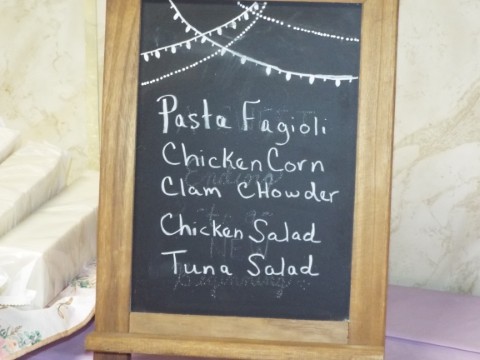 Pasta Fagioli
Chicken Corn
Clam CHowder
Chicken Salad
Tuna Salad